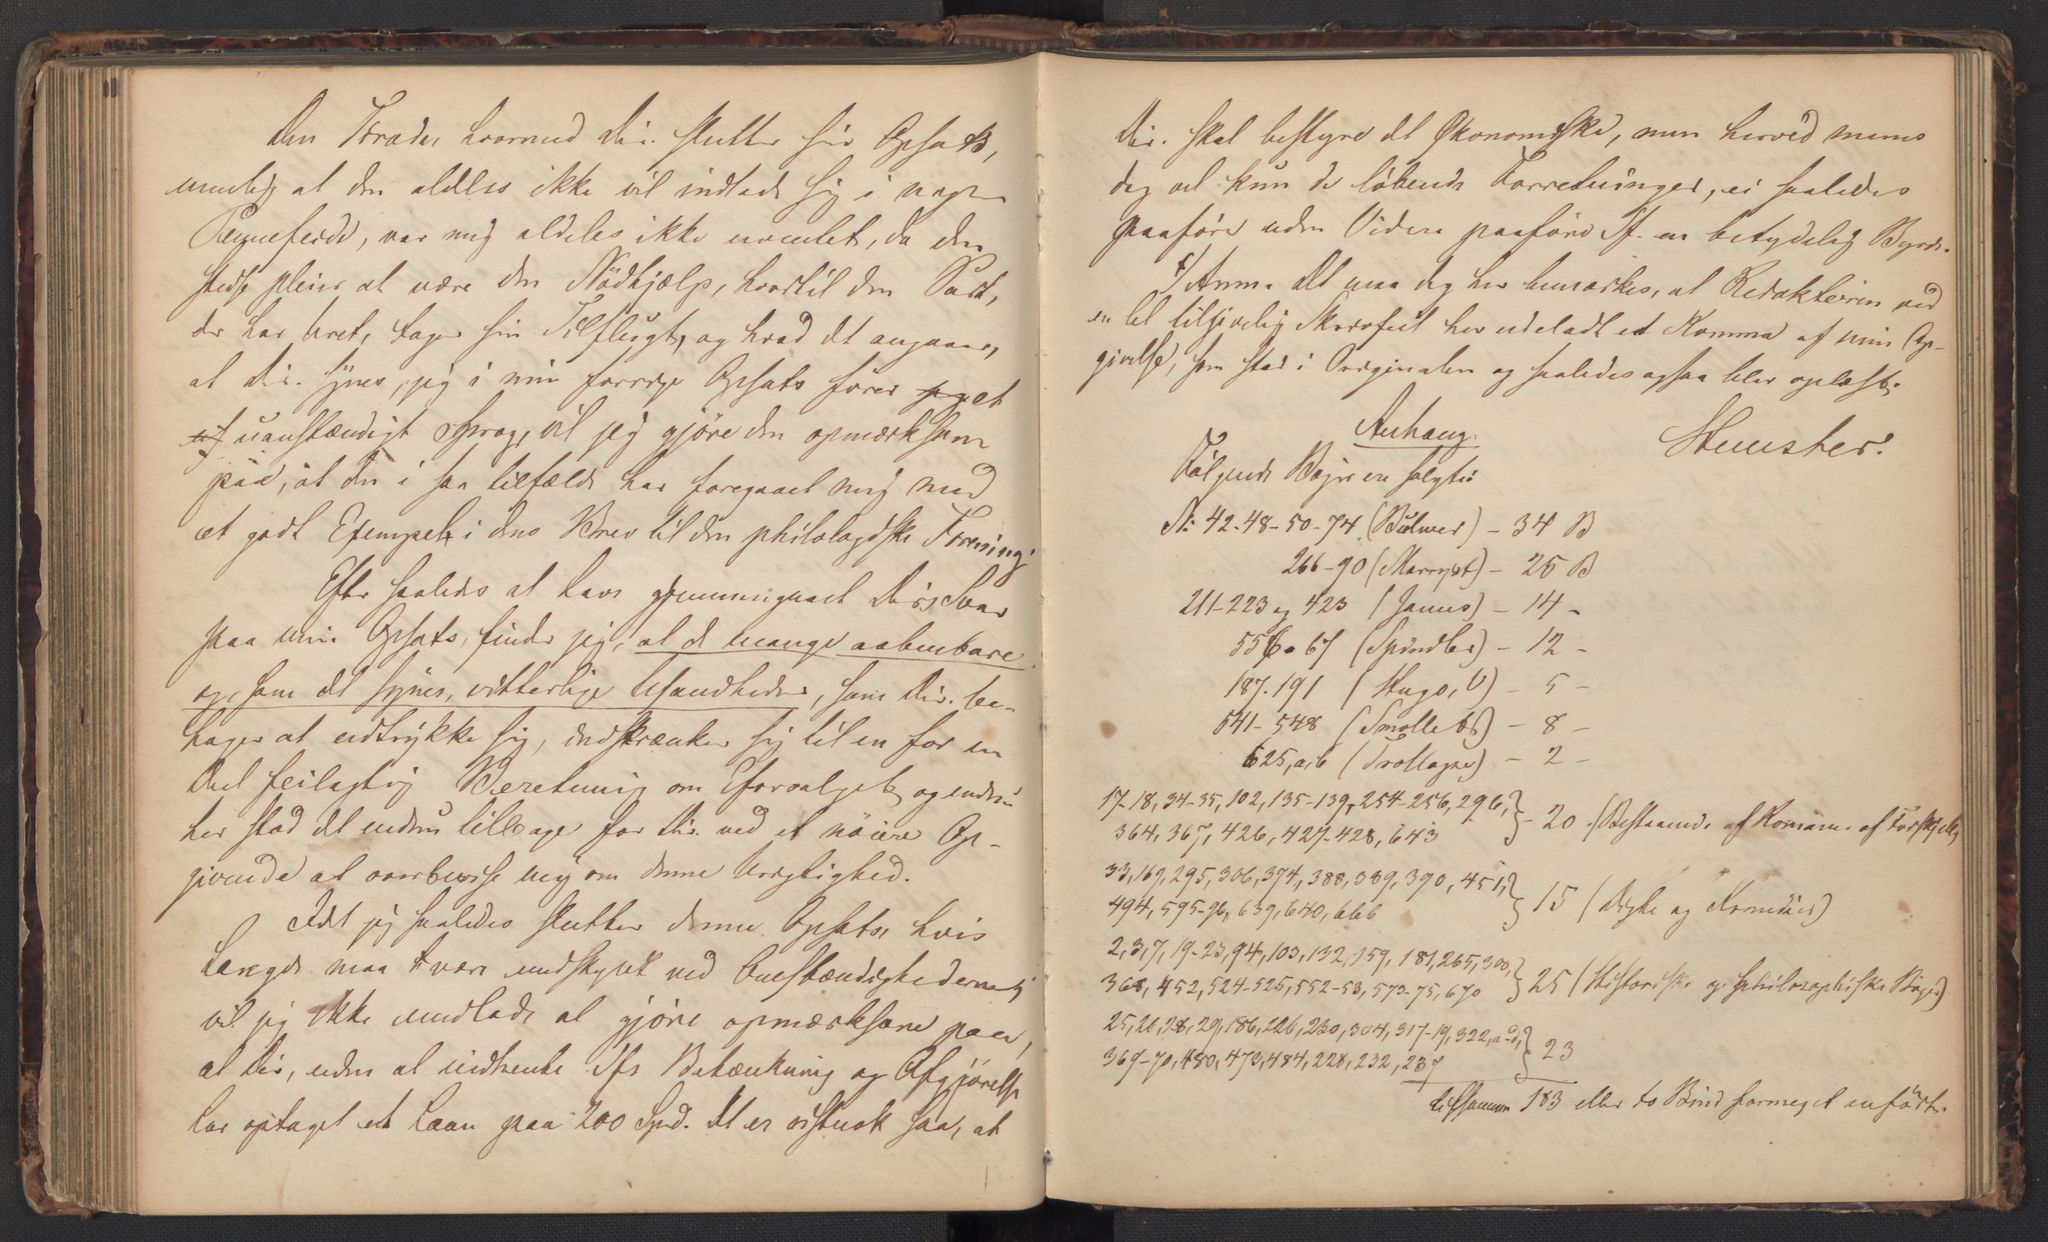 Den Trudsel hvormed Dir. slutter sin Opsats,
nemlig at den aldeles ikke vil indlade sig i nogen
Pennefeide, var mig aldeles ikke uventet, da den
stedse pleier at være den Nödhjælp, hvortil den Part,
der har Uret, tager sin Tilflugt, og hvad det angaaer,
at Dir. synes, jeg i min forrige Opsats fører et
uanstændigt Sprog, vil jeg gjöre den opmærksom
paa, at den i saa tilfælde har foregaaet mig med
et godt Exempel i dens Brev til den philologiske Forening.
Efter saaledes at have gjennemgaaet Dir's Svar
paa min Opsats, finder jeg, at de mange aabenbare
og, som det synes, vitterlige Usandheder, som Dir. be-
hager at udtrykke sig, indskrænker sig til en for en
Deel feilagtig Beretning om Udsalget, og endnu
her stod det endnu tilbage for Dir. ved et nöiere Op-
givende at overbevise mig om denne Urigtighed.
Idet jeg saaledes slutter denne Opsats, hvis
Længde maa være undskyldt ved Omstændighederne,
vil jeg ikke undlade at gjöre opmærksom paa,
at Dir., uden at indhente Sfs Betænkning og Afgjörelse
har optaget et Laan paa 200 Spd. Det er vistnok saa, at
Dir. skal bestyre det Økonomiske, men herved menes
dog vel kun de löbende Forretninger, ei saaledes
paaføre uden Videre paaføre Sf. en betydelig Byrde.
Anm. Det maa dog her bemærkes, at Redaktören ved
en let tilgivelig Skrivefeil her udeladt et Komma af min Op-
givelse, som stod i Originalen og saaledes ogsaa blev oplæst.
Anhang.
Hemster.
Fölgende Böger ere solgte:
N: 42-48-50-74 (Bulwer) - 34 B
266-90 (Marryat) - 25 B
211-223 og 423 (James) - 14 -
556-67 (Spindler) - 12 -
187-191 (Hugo, V) - 5 -
541-548 (Smollett) - 8 -
625, a.b (Trollope) - 2 -
17-18, 34-35, 102, 135-139, 254-256, 296,
364, 367, 426, 427-428, 643 } - 20. (Bestaaende af Romaner af Forskjellige
33, 169, 295, 306, 374, 388, 389, 390, 451,
494, 595-96, 639, 640, 666 } 15 (Digte og Komedier)
2, 3, 7, 19-23, 94, 103, 132, 159, 181, 265, 300,
368, 452, 524-525, 552-53, 573-75, 670 } 25 (Historiske og philosophiske Böger)
25, 26, 28, 29, 186, 226, 230, 304, 317-19, 322, a-d,
369-70, 480, 473, 484, 228, 232, 237 } 23
tilsammen 183 eller to Bind formeget anfört.